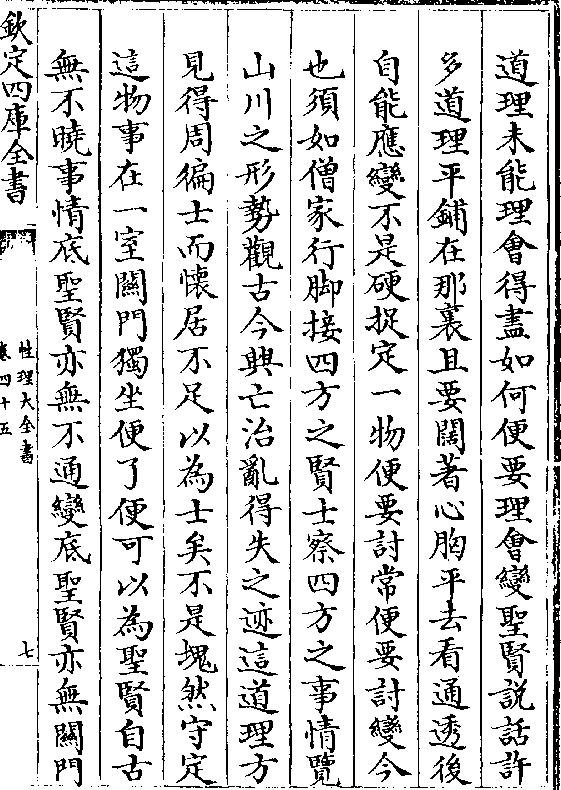 道理未能理會得盡如何便要理會變聖賢說話許
多道理平鋪在那裏且要闊著心胸平去看通透後
自能應變不是硬捉定一物便要討常便要討變今
也須如僧家行脚接四方之賢士察四方之事情覽
山川之形勢觀古今興亡治亂得失之迹這道理方
見得周徧士而懷居不足以為士矣不是塊然守定
這物事在一室關門獨坐便了便可以為聖賢自古
無不曉事情底聖賢亦無不通變底聖賢亦無關門
欽定四庫全書
性理大全書
卷四十五
七